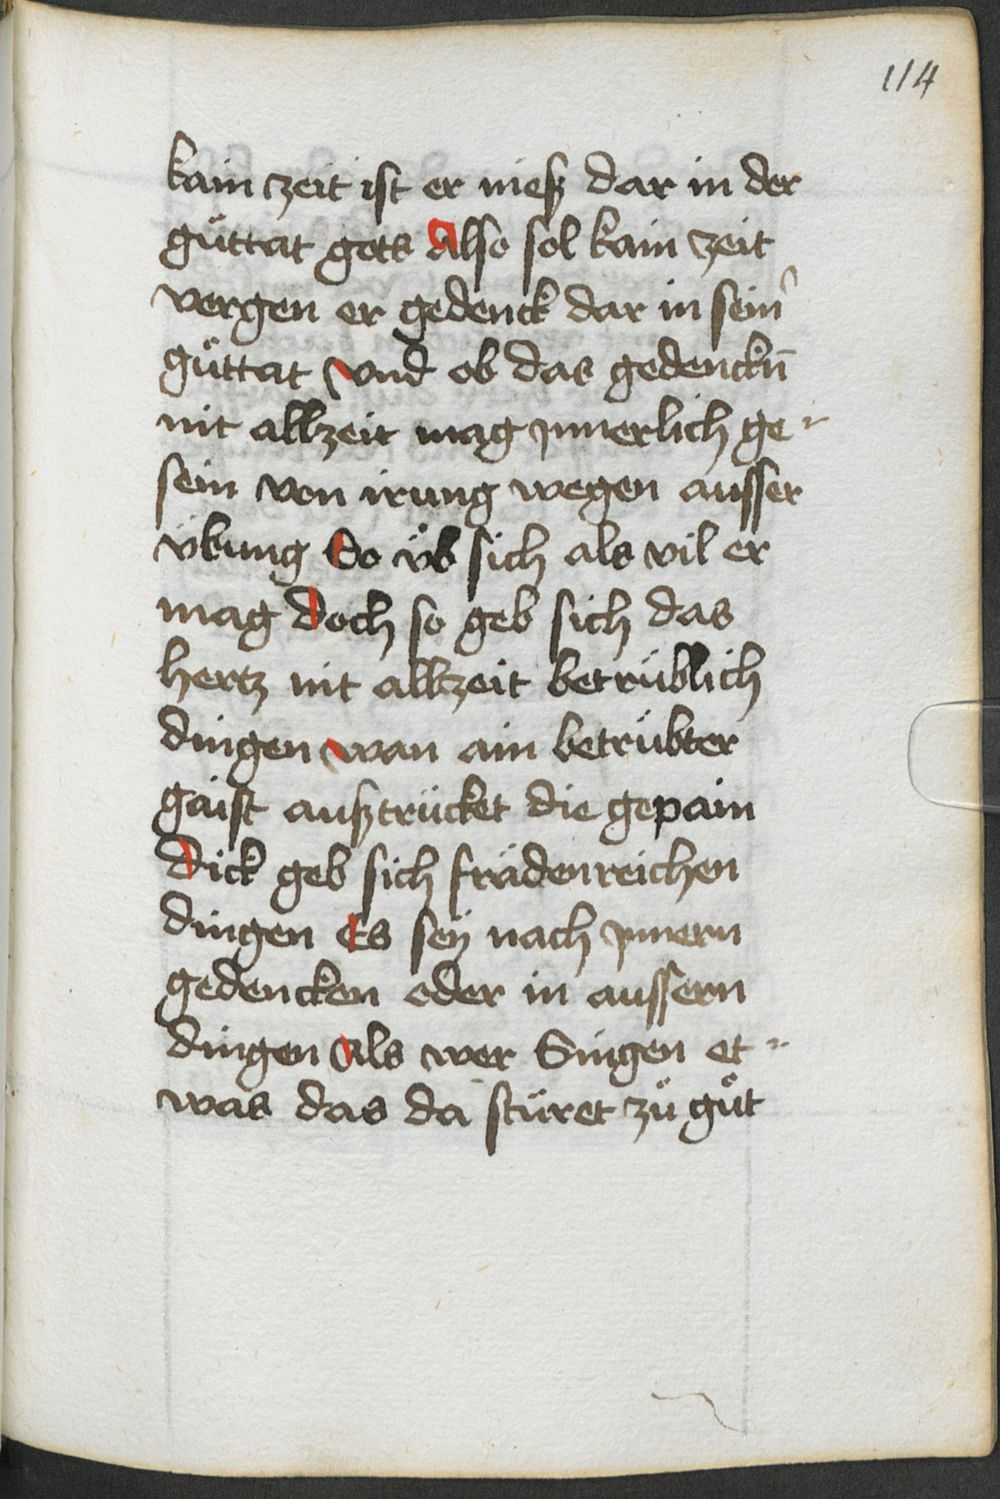 114
kain zeit ist er nieß dar in der
gůttat gots Also sol kain zeit
vergen er gedenck dar in sein̕
gůttat vnd ob das gedenckn̄
nit allzeit mag ynnerlich ge-
sein von irung wegen ausser
vͤbung So vͤb sich als vil er
mag Doch so geb sich das
hertz nit allzeit betrüblich
dingen wan ain betrübter
gaist außtrücket die gepain
Dick geb sich frädenreichen
dingen Es seÿ nach ynnern
gedencken oder in aussern
dingen Als wer Singen et-
was das da stüret zů gůt